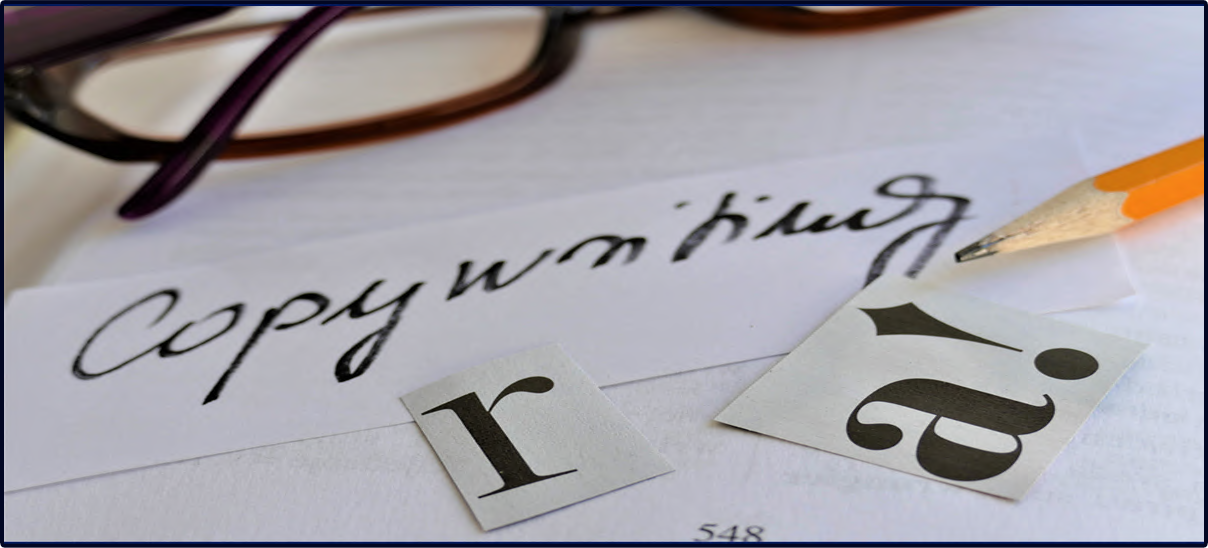 Copywriting
r
a!
548